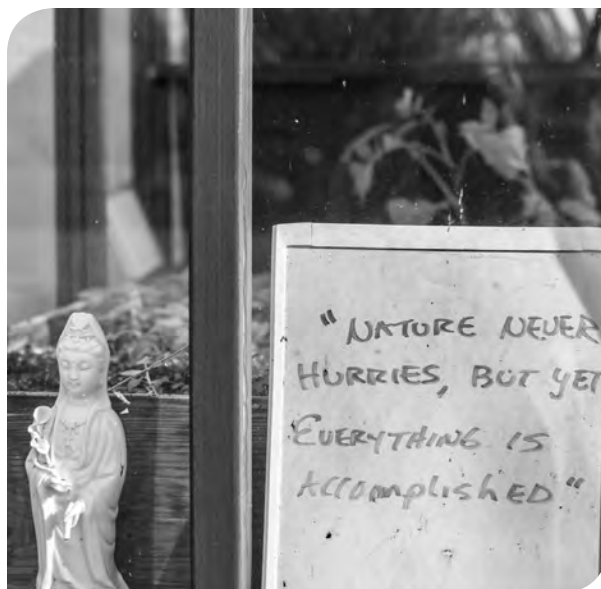 "NATURE NEVER
HURRIES, BUT YET
EVERYTHING IS
ACCOmplishED"